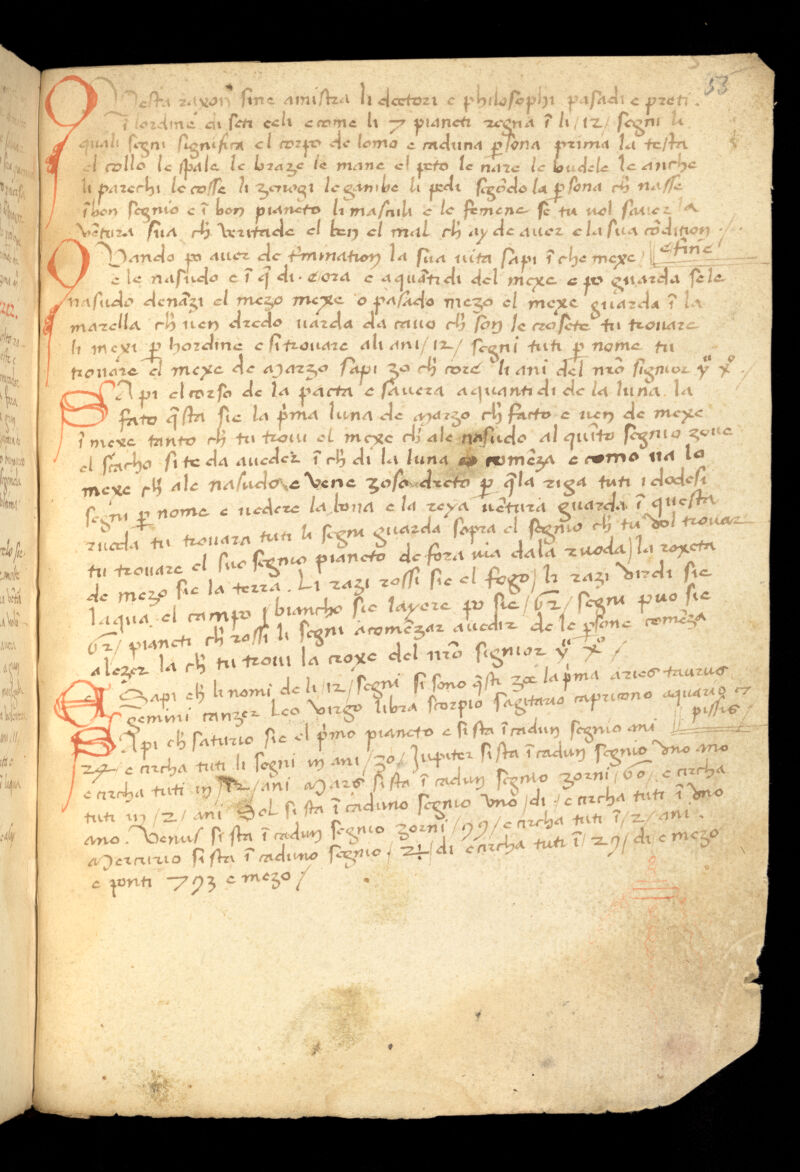 53
Questa raxon sine amistra li dectori e philosophi pasadi e preti.
ĩ lordine di seti celi e come li 7 pianeti regna ĩ li /12/ segni li
quali segni significa el corpo de lomo e caduna ꝑsona prima la testa
el collo le spale le braze le mane el peto le nare le budele le anche
li parechi le cosse li zenogi le gambe li pedi segõdo la ꝑsona cħ nasse
ĩ bon segnio e ĩ bon pianeto li masculi e le femene se tu vol saver la
vẽtura sua cħ veritade el ben el mal cħ ay de aver e la sua cõdition
e fine
Quando po aver de la sua vita sapi ĩ che mexe
e le nasudo e ĩ q̃ di. e ora e aquãti di del mexe e po guarda se le
nasudo denãzi el mezo mexe o pasado mezo el mexe guarda ĩ la
marella cħ ven dredo varda da cavo cħ son le crosete tu trovare
li mexi ꝑ hordine e si trovare ali ani /12/ segni tuti ꝑ nome tu
trovare el mexe de marzo sapi zo cħ core li ani del nr̃o signior yħ xº
Sapi el corso de la pacta e savera aquanti di de la luna la
fato q̃sta sie la pr̃ma luna de marzo cħ facto e ven de mexe
ĩ mexe tanto cħ tu trovi el mexe cħ ale nasudo al quĩto segnio zove
el si te da aveder ĩ cħ di la luna comẽza e como va lo
mexe cħ ale nasudo e vene zoso dreto ꝑ q̃la riga tuti i dodesi
segni ꝑ nome e vedere la bona e la reya vẽtura guarda ĩ questa
rueda tu trovara tuti li segni guarda sopra el segnio cħ tu vol trovar
tu trovare el suo segnio pianeto de fora via dala ruoda / la roxeta
de mezo sie la terra. Li razi rossi sie el fogo / li razi virdi sie
laqua el campo biancho sie layere po sie /62/ segni puo sie
62/ pianeti cħ rossi li segni acomẽzar avedir de le ꝑsone comẽza
alezer la cħ tu trovi la croxe del nr̃o signior yħ xº /
Sapi cħ li nomi de li /12/ segni si sono q̃sti zoe la pr̃ma aries taurus
gemini canzer Leo Virgo libra scorpio sagitario capricono aquario e
pissis
Sapi cħ saturio sie el pr̃mo pianeto e si sta ĩ cadun segnio ani
2½ e circha tuti li segni in ani /30/ Jupiter si sta ĩ cadun segnio uno ano
e circha tuti in /12/ ani Mars si sta ĩ cadun segnio zorni /60/ e circha
tuti in /2/ ani Sol si sta ĩ caduno segnio uno / di / e circha tuti ĩ uno
ano. Venus si sta ĩ cadun segnio zorni /99/ e circha tuti ĩ /2/ ani.
Mercurio si sta ĩ caduno segnio / 2½ / di e circha tuti ĩ /29/ di e mezo
e ponti 793 e mezo /